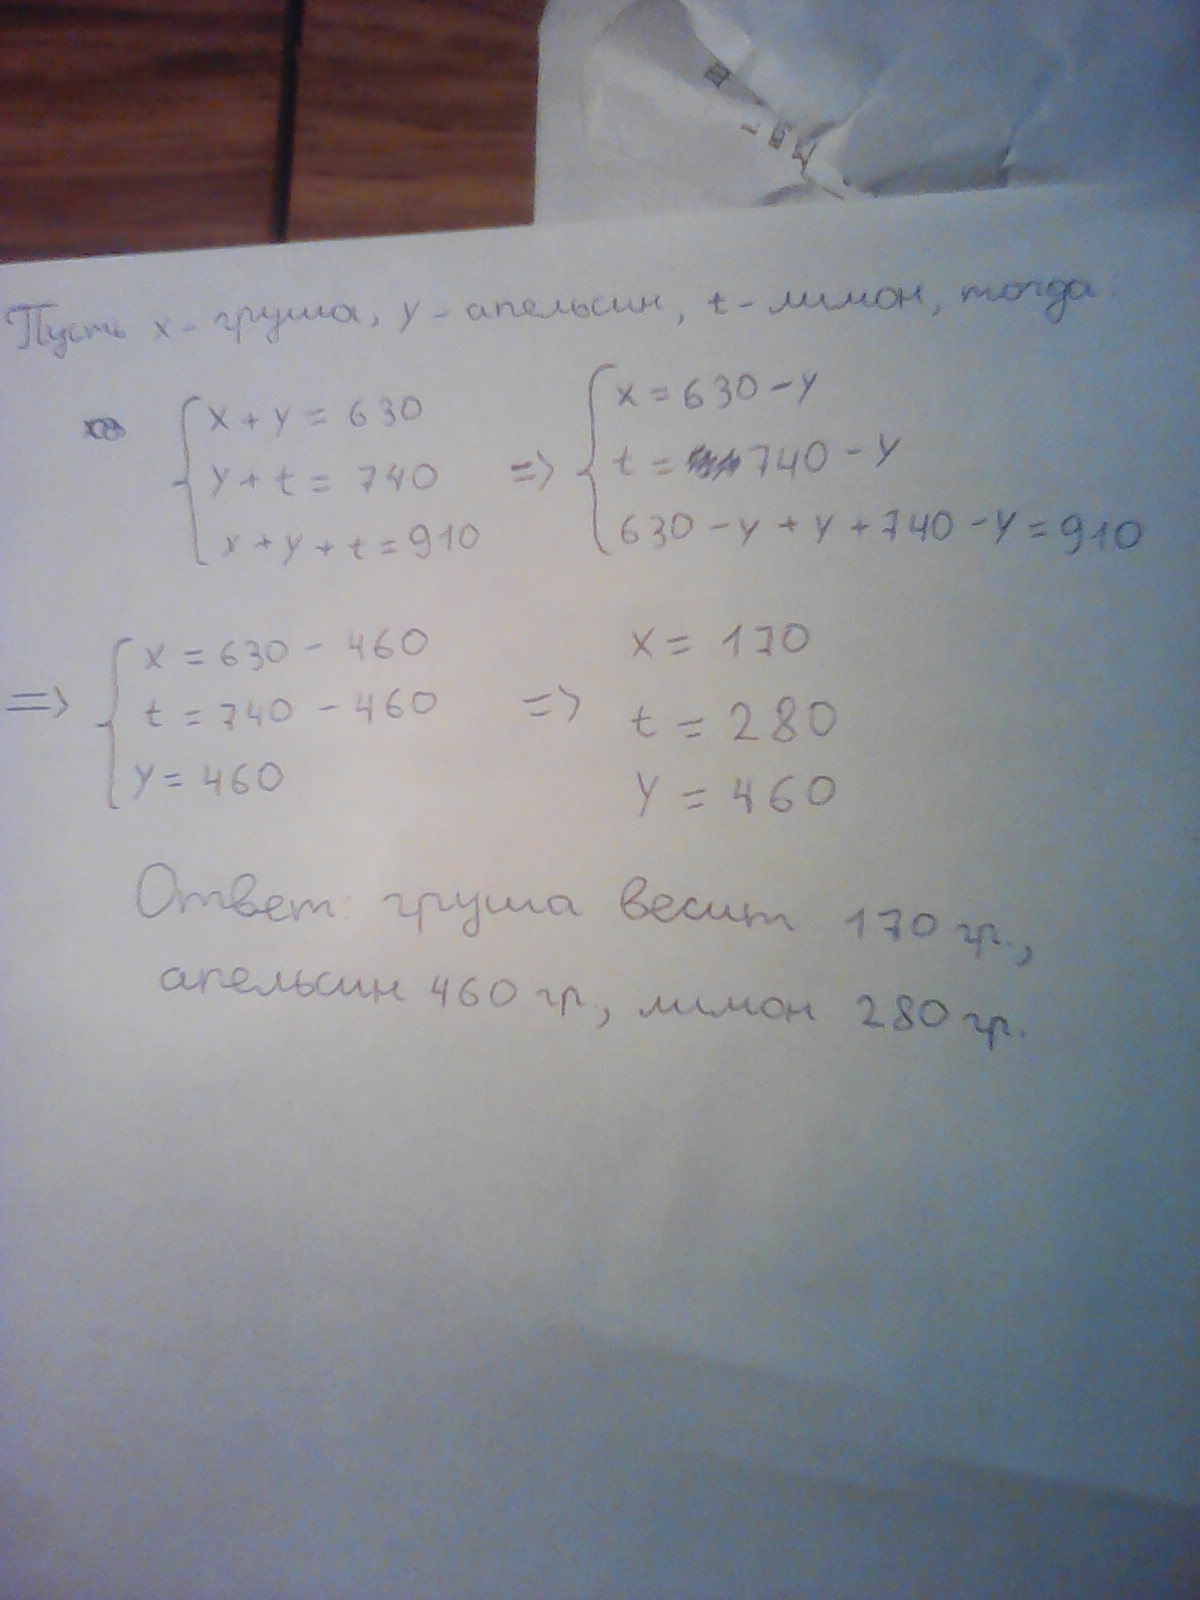 Пусть x - груша, y - апельсин, t - лимон, тогда:
x + y = 630
y + t = 740
x + y + t = 910
=>
x = 630 - y
t = 740 - y
630 - y + y + 740 - y = 910
=>
x = 630 - 460
t = 740 - 460
y = 460
=>
x = 170
t = 280
y = 460
Ответ: груша весит 170 гр.,
апельсин 460 гр., лимон 280 гр.